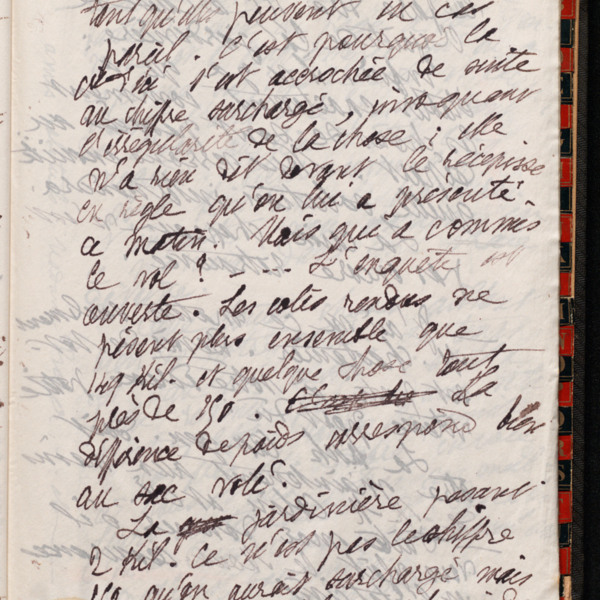 qu'ils peuvent en cas
pareil. C'est pourquoi la
s'est accrochée de suite
au chiffre surchargé, invoquant
l'irrégularité de la chose ; elle
n'a rien dit devant le récépissé
en règle qu'on lui a présenté
ce matin. Mais qui a commis
le vol ? - - - L'enquête est
ouverte. Les colis rendus ne
pèsent plus ensemble que
149 kil. et quelque chose tout
près de 150. La
différence de poids correspond bien
au sac volé.
La jardinière pesant
2 kil. ce n'est pas le chiffre
150 qu'on aurait surchargé mais